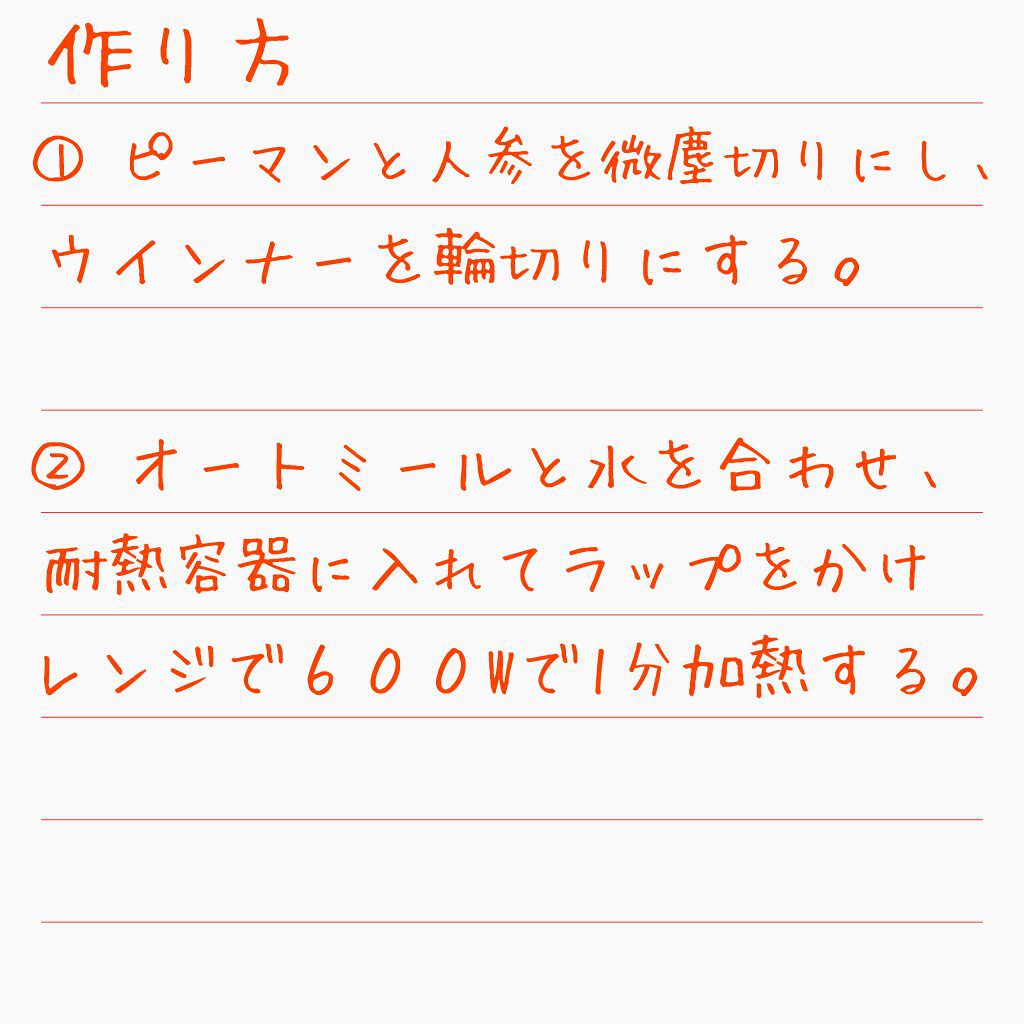 作り方
① ピーマンと人参を微塵切りにし、
ウインナーを輪切りにする。
② オートミールと水を合わせ、
耐熱容器に入れてラップをかけ
レンジで600Wで1分加熱する。